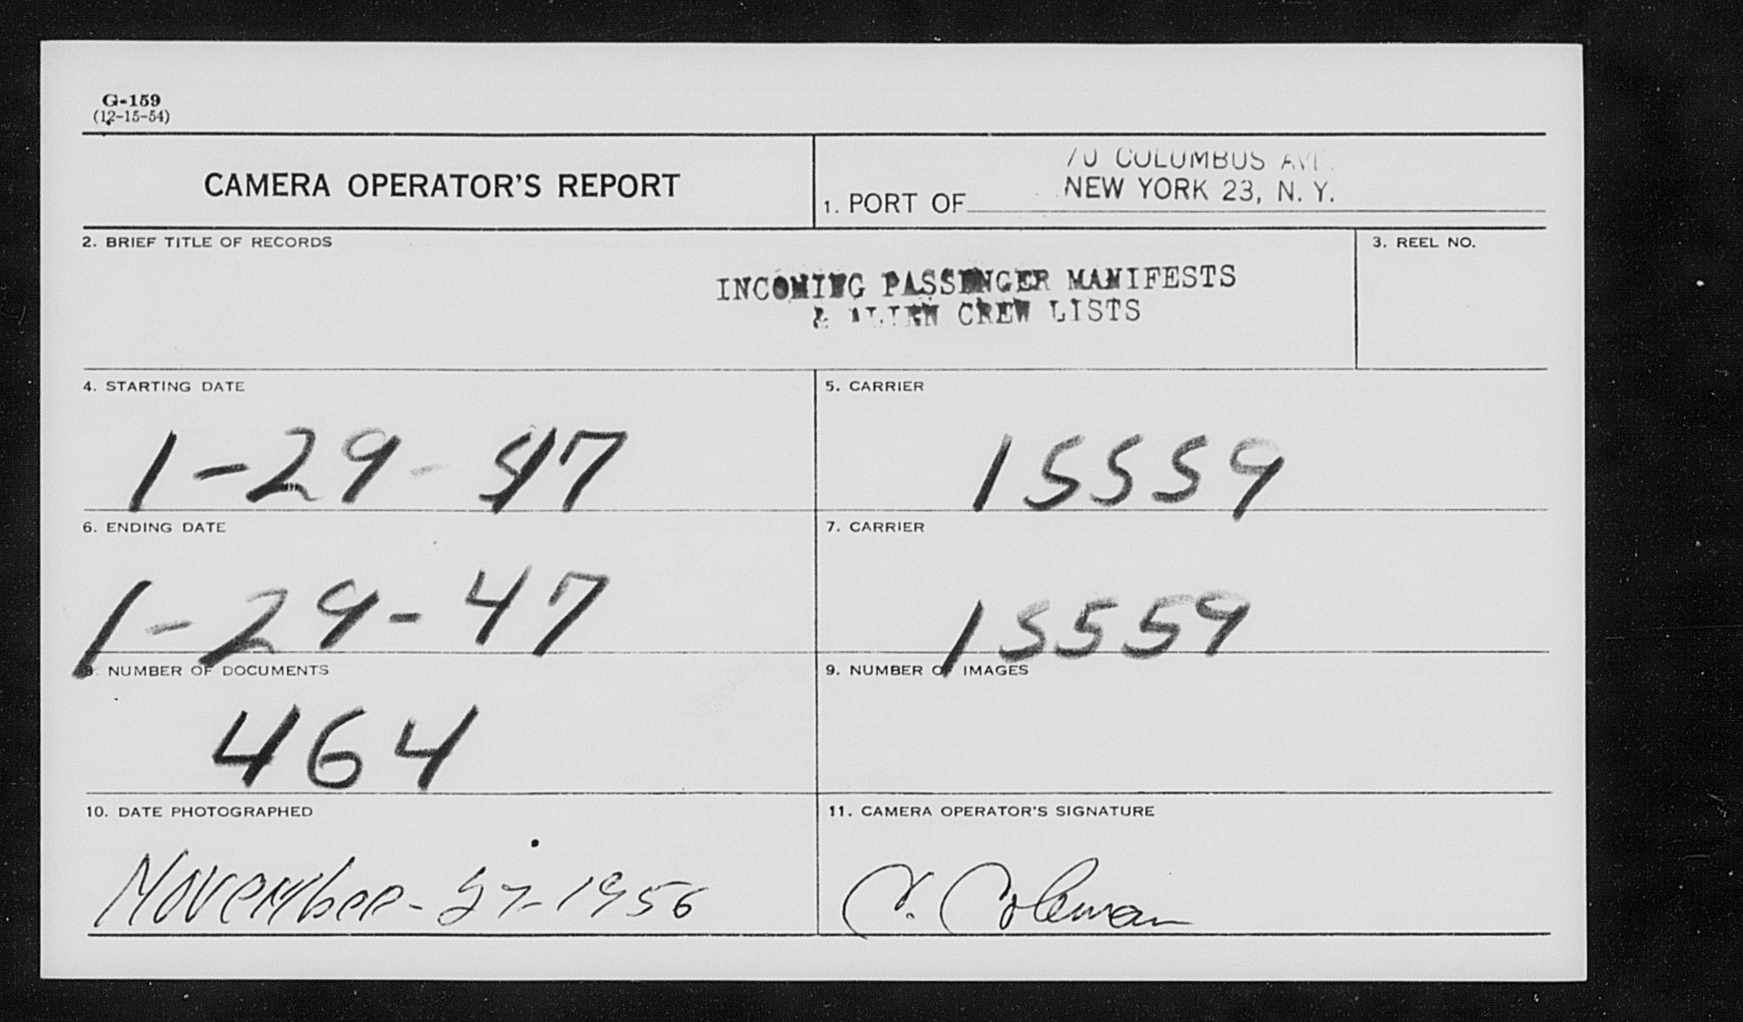 G-159
(12-15-54)
CAMERA OPERATOR'S REPORT
70 COLUMBUS AVE.
1. PORT OF NEW YORK 23, N. Y.
2. BRIEF TITLE OF RECORDS
3. REEL NO.
INCOMING PASSENGER MANIFESTS
& ALIEN CREW LISTS
4. STARTING DATE
5. CARRIER
1-29-47
15559
6. ENDING DATE
7. CARRIER
1-29-47
15559
8. NUMBER OF DOCUMENTS
9. NUMBER OF IMAGES
464
10. DATE PHOTOGRAPHED
11. CAMERA OPERATOR'S SIGNATURE
November-27-1956
Coleman